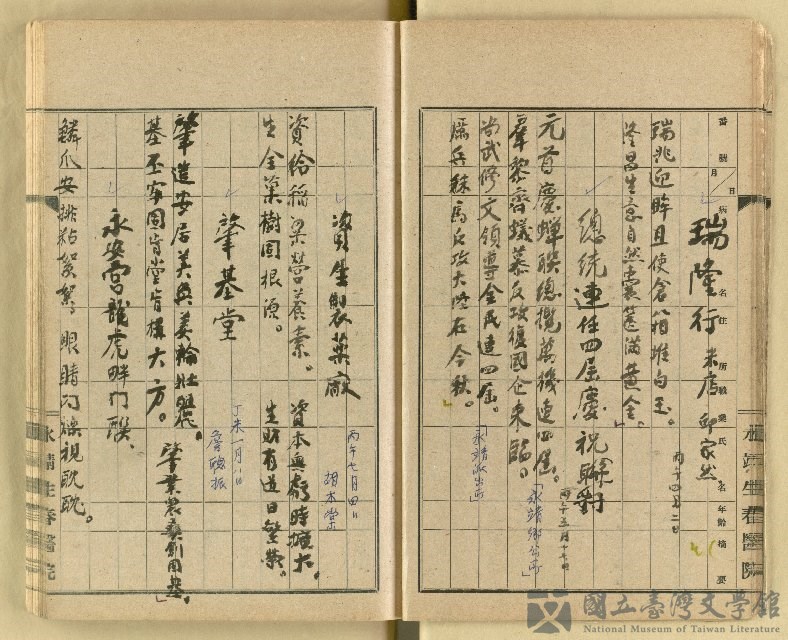 番號 月 日 病名 住所 職業 氏名 年齡 摘要
瑞隆行 米店 邱家然
丙午四月二日
瑞兆迎眸且使倉箱堆白玉。
隆昌生意自然囊篋滿黃金。
總統連任四屆慶祝聯對
丙午五月十七日
元首慶蟬聯總攬萬機連四屆。
「永靖鄉公所」
羣黎齊蟻慕反攻復國企來臨。
尚武修文領導全民連四屆。
「永靖派出所」
厲兵秣馬反攻大陸在今秋。
資生製藥廠
丙午七月四日
胡木榮
資給稻粱營養素。 資本無虧時擴大。
生全菓樹固根源。 生財有道日繁榮。
肇基堂
丁未一月八日
詹聰振
肇造安居美奐美輪壯麗。 肇業農桑創固基。
基丕牢固肯堂肯構大方。
永安宮龍虎畔門聯
鱗爪安排粘鬢髯 眼睛閃爍視耽耽。
永靖生春醫院
永靖生春醫院
國立臺灣文學館
National Museum of Taiwan Literature